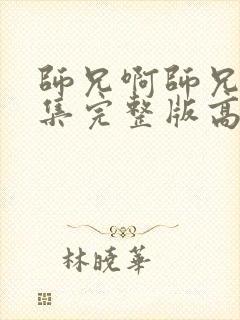 師兄啊師兄
集完整版高
林曉華